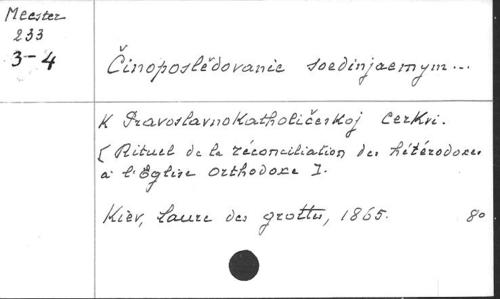 Meester
233
3-4
Činoposlědovanie soedinjaemym...
K Pravoslavnokatholičeskoj Cerkvi.
[Rituel de la réconciliation des hétérodoxes
à l'Eglise Orthodoxe].
Kiev, Laure des grottes, 1865. 8o